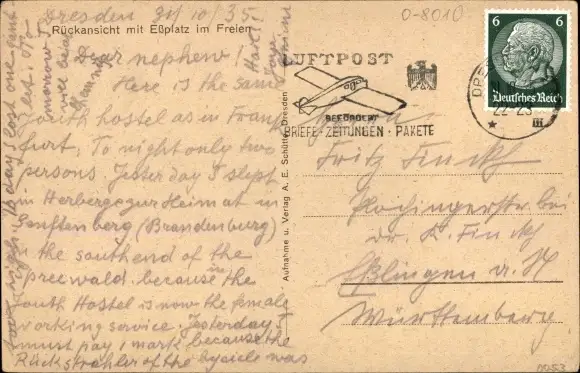 Dresden 31/10/35.
Rückansicht mit Eßplatz im Freien
Dear nephew!
Here is the same
youth hostel as in Frank
furt. To night only two
persons. Yesterday I slept
in Herberge zur Heimat in
Senftenberg (Brandenburg)
the south end of the
Spreewald. because in the
youth Hostel is now the female
working service. Yesterday
must pay 1 mark because the
Rückstrahler of the bycicle was
Aufnahme u. Verlag A. E. Schütte, Dresden
0-8010
LUFTPOST
BEFÖRDERT
BRIEFE · ZEITUNGEN · PAKETE
6 6
Deutsches Reich
DRES
22-23
Herrn
Fritz Finckh
Plochingerstr bei
dr. K. Finckh
Eßlingen a. N
Württemberg